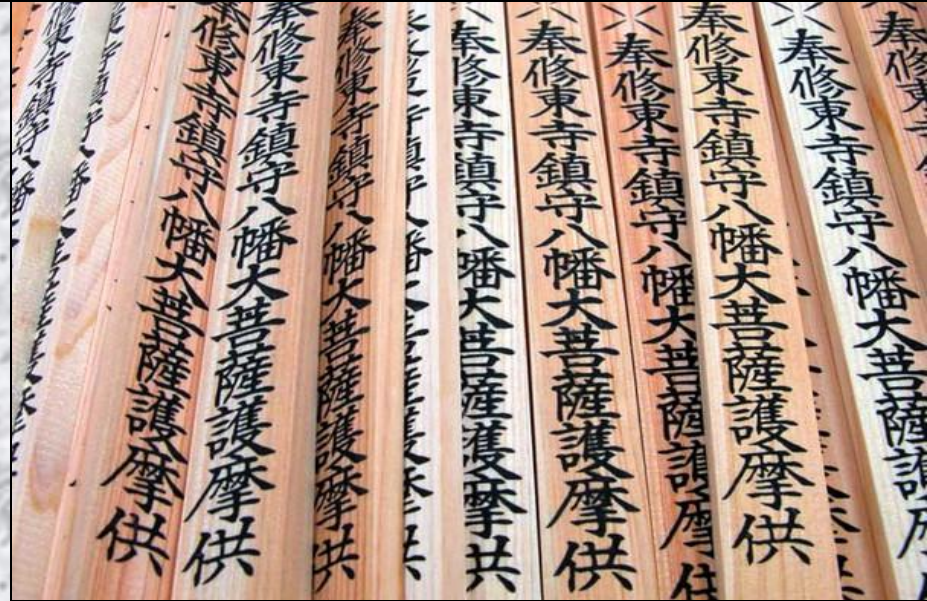 奉修東寺
奉修東寺鎮守八幡大菩薩護摩
奉修東寺鎮守八幡大菩薩護摩供
奉修東寺鎮守八幡大菩薩護摩供
奉修東寺鎮守八幡大菩薩護摩供
奉修東寺鎮守八幡大菩薩護摩供
奉修東寺鎮守八幡大菩薩護摩供
奉修東寺鎮守八幡大菩薩護摩供
奉修東寺鎮守八幡大菩薩護摩供